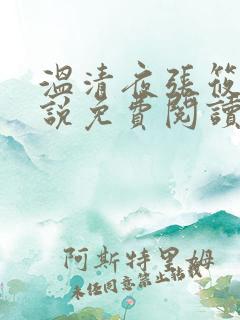 溫清夜張筱
說免費閱讀
阿斯特里姆
未经同意禁止转载